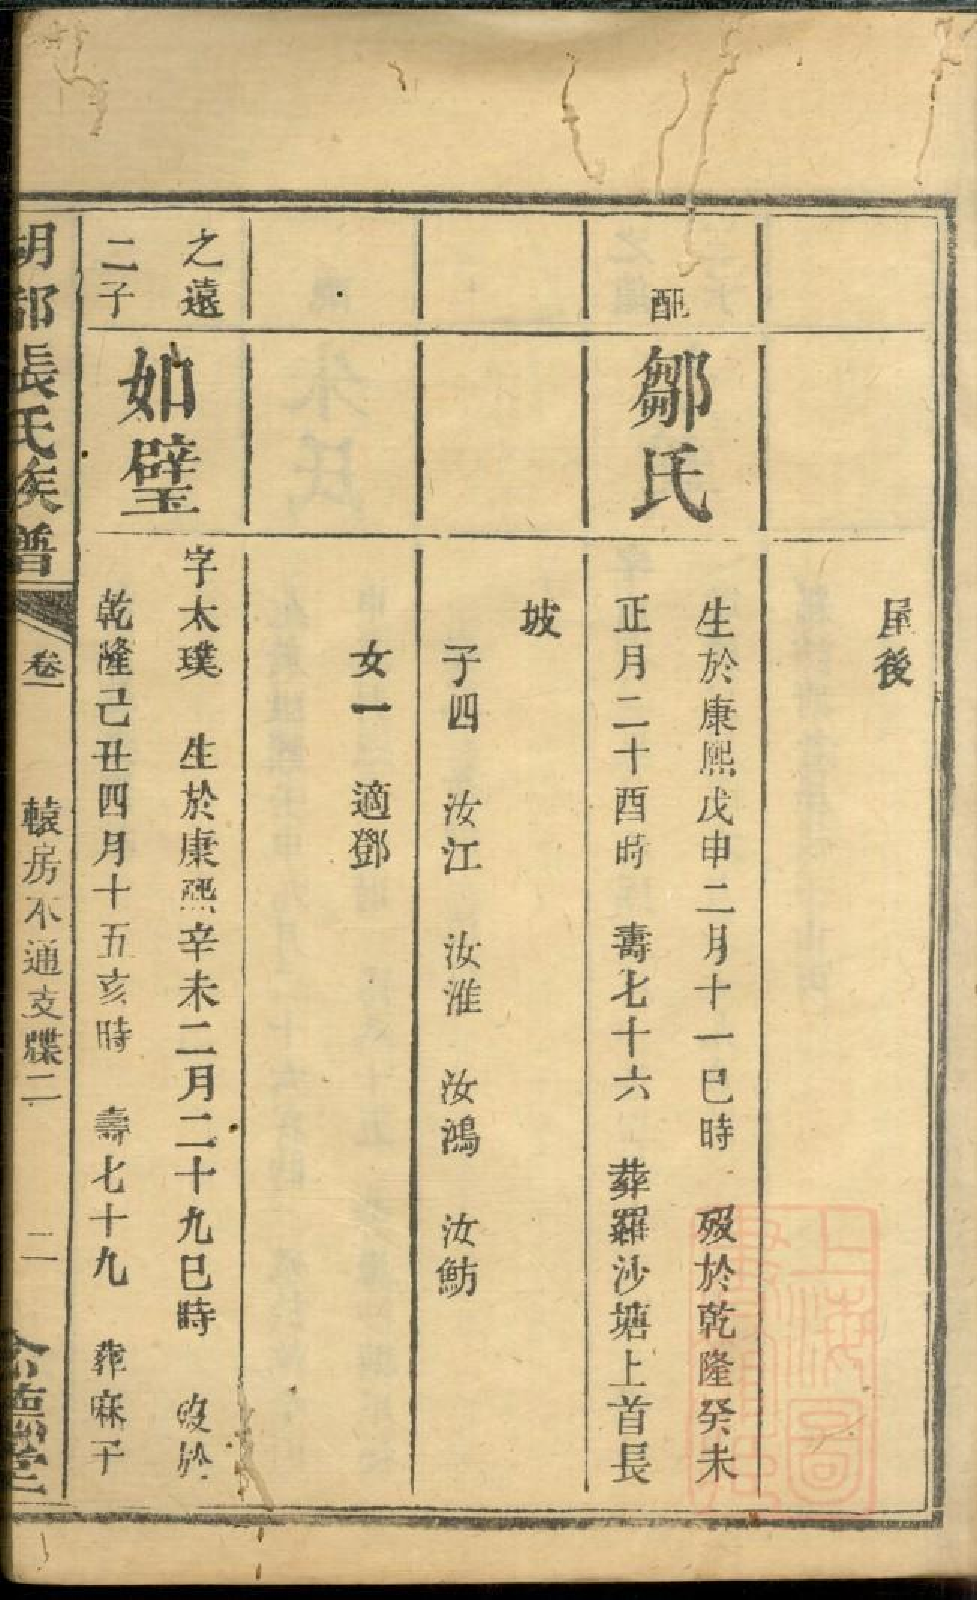 屋後
配
鄒氏
生於康熙戊申二月十一巳時　歿於乾隆癸未
正月二十酉時　壽七十六　葬羅沙塘上首長
坡
子四　汝江　汝淮　汝鴻　汝魴
女一　適鄧
之遠
二子
如璧
字太璞　生於康熙辛未二月二十九巳時　歿於
乾隆己丑四月十五亥時　壽七十九　葬麻子
胡都張氏族譜
卷一
轅房不通支牒二
二
德堂
上海圖